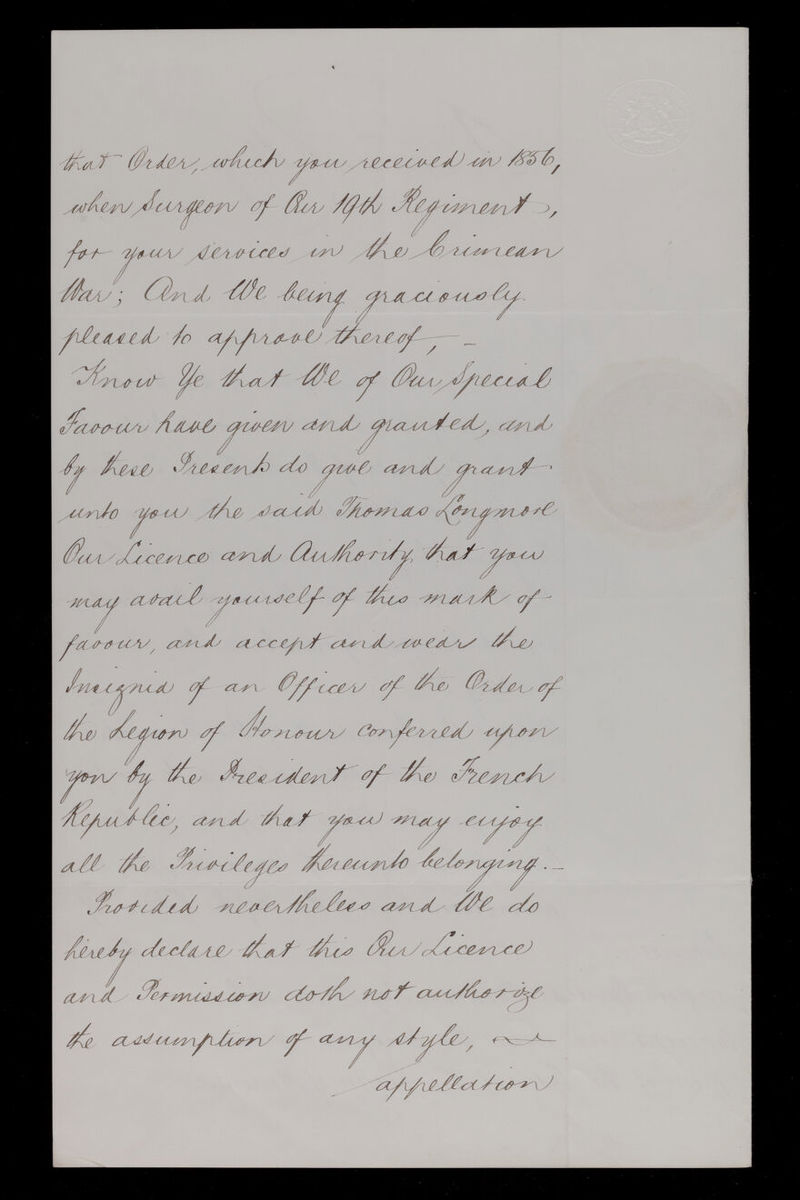 that Order, which you received in 1856,
when Surgeon of Our 19th Regiment,
for your services in the Crimean
War; And We being graciously
pleased to approve thereof, –
Know Ye that We of Our Special
Favour have given and granted, and
by these Presents do give and grant
unto you the said Thomas Longmore
Our Licence and Authority, that you
may avail yourself of this mark of
favour, and accept and wear the
Insignia of an Officer of the Order of
the Legion of Honour conferred upon
you by the President of the French
Republic, and that you may enjoy
all the Privileges thereunto belonging. –
Provided nevertheless and We do
hereby declare that this Our Licence
and Permission doth not authorize
the assumption of any style,
appellation